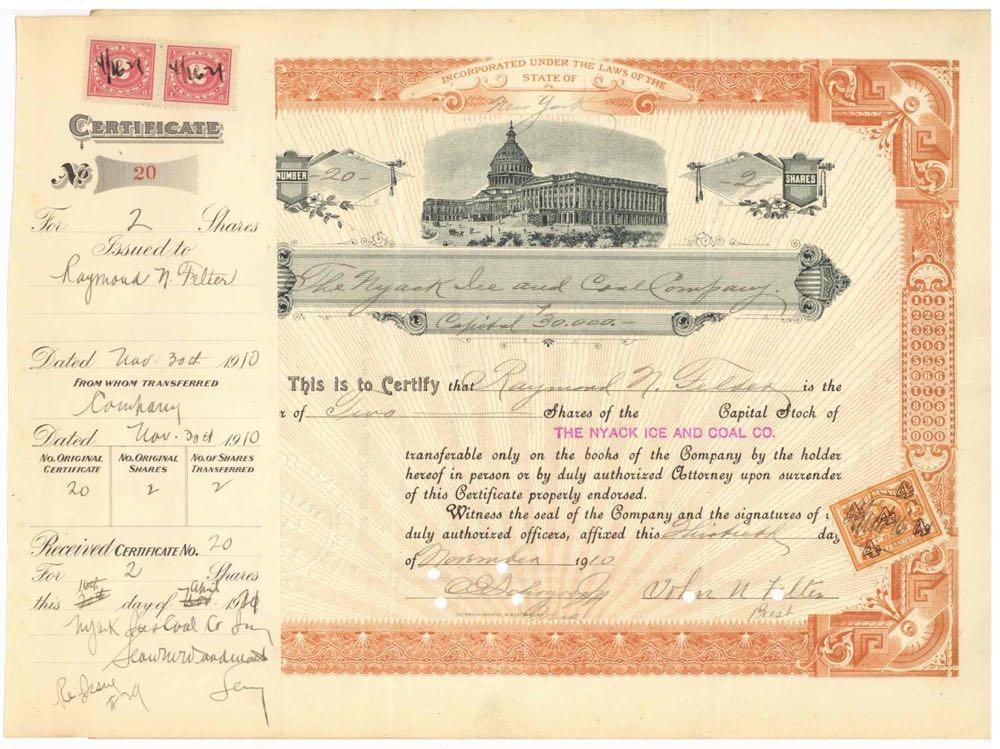 4/16-21 4/16-21
CERTIFICATE
No 20
For 2 Shares
Issued to
Raymond N. Felter
Dated Nov. 30th 1910
FROM WHOM TRANSFERRED
Company
Dated Nov. 30th 1910
NO. ORIGINAL CERTIFICATE
NO. ORIGINAL SHARES
NO. OF SHARES TRANSFERRED
20 2 2
Received CERTIFICATE NO. 20
For 2 Shares
this 16th day of April 19
Nyack Ice & Coal Co Inc
Re Issue
INCORPORATED UNDER THE LAWS OF THE
STATE OF
New York
NUMBER -20- -2- SHARES
The Nyack Ice and Coal Company.
Capital $30.000.-
This is to Certify that Raymond N. Felter is the
r of Two Shares of the Capital Stock of
THE NYACK ICE AND COAL CO.
transferable only on the books of the Company by the holder
hereof in person or by duly authorized Attorney upon surrender
of this Certificate properly endorsed.
Witness the seal of the Company and the signatures of i
duly authorized officers, affixed this Thirtieth day
of November 1910
John N Felter
Prest
111
222
333
444
555
666
777
888
999
000
4 4 4 4 4